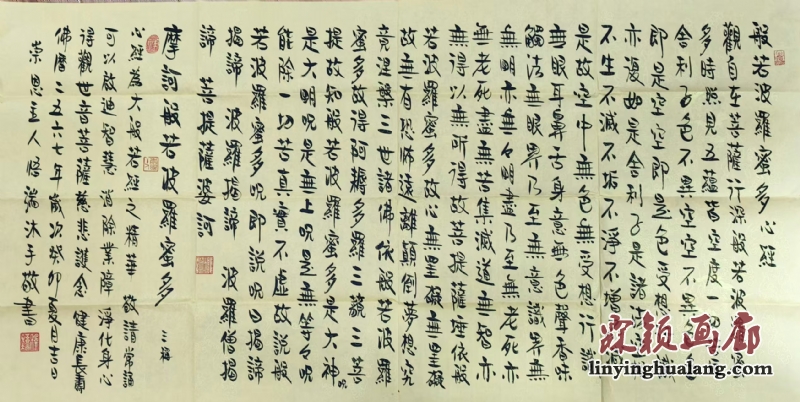 般若波羅蜜多心經
觀自在菩薩行深般若波羅蜜
多時照見五蘊皆空度一切
舍利子色不異空空不異色色
即是空空即是色受想行識
亦復如是舍利子是諸法空相
不生不滅不垢不淨不增不減
是故空中無色無受想行識
無眼耳鼻舌身意無色聲香味
觸法無眼界乃至無意識界無
無明亦無々明盡乃至無老死亦
無老死盡無苦集滅道無智亦
無得以無所得故菩提薩埵依般
若波羅蜜多故心無罣礙無罣礙
故無有恐怖遠離顛倒夢想究
竟涅槃三世諸佛依般若波羅
蜜多故得阿耨多羅三藐三菩
提故知般若波羅蜜多是大神咒
是大明咒是無上咒是無等々咒
能除一切苦真實不虛故說般
若波羅蜜多咒即說咒曰揭諦
揭諦 波羅揭諦 波羅僧揭
諦 菩提薩婆訶
摩訶般若波羅蜜多 三稱
心經為大般若經之精華 敬請常誦
可以啟迪智慧 消除業障 淨化身心
得觀世音菩薩慈悲護念 健康長壽
佛曆二五六七年歲次癸卯 吉日
崇恩主人悟 沐手敬書
霖颖画廊
linyinghualang.com